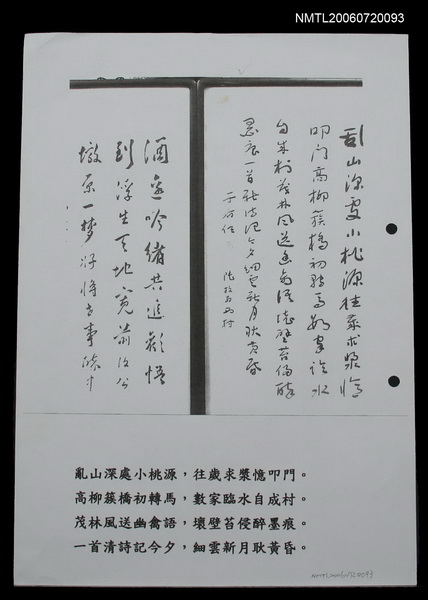 NMTL20060720093
乱山深處小桃源往歲求漿憶
叩门高柳簇橋初转馬数家临水
自成村茂林风送幽禽语壞壁苔侵醉
墨痕一首清诗记今夕细雲新月耿黄昏
于右任 陸放翁西村
酒邊吟緒共追歡悟
到浮生天地寬前後公
墩原一梦好将古事
亂山深處小桃源，往歲求漿憶叩門。
高柳簇橋初轉馬，數家臨水自成村。
茂林風送幽禽語，壞壁苔侵醉墨痕。
一首清詩記今夕，細雲新月耿黃昏。
NMTL20060720093